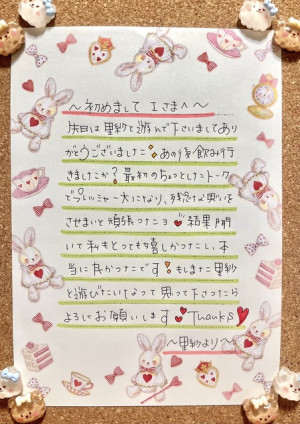 〜初めまして Iさまへ〜
先日は里紗と遊んで下さいましてあり
がとうございました あの後飲み行
きましたか?最初のちょっとしたトーク
でプレッシャー大になり、残念な思いを
させまいと頑張ったヨ 結果聞
いて私もとっても嬉しかったし、本
当に良かったです!もしまた里紗
と遊びたいなって思って下さったら
よろしくお願いします Thanks
〜里紗より〜